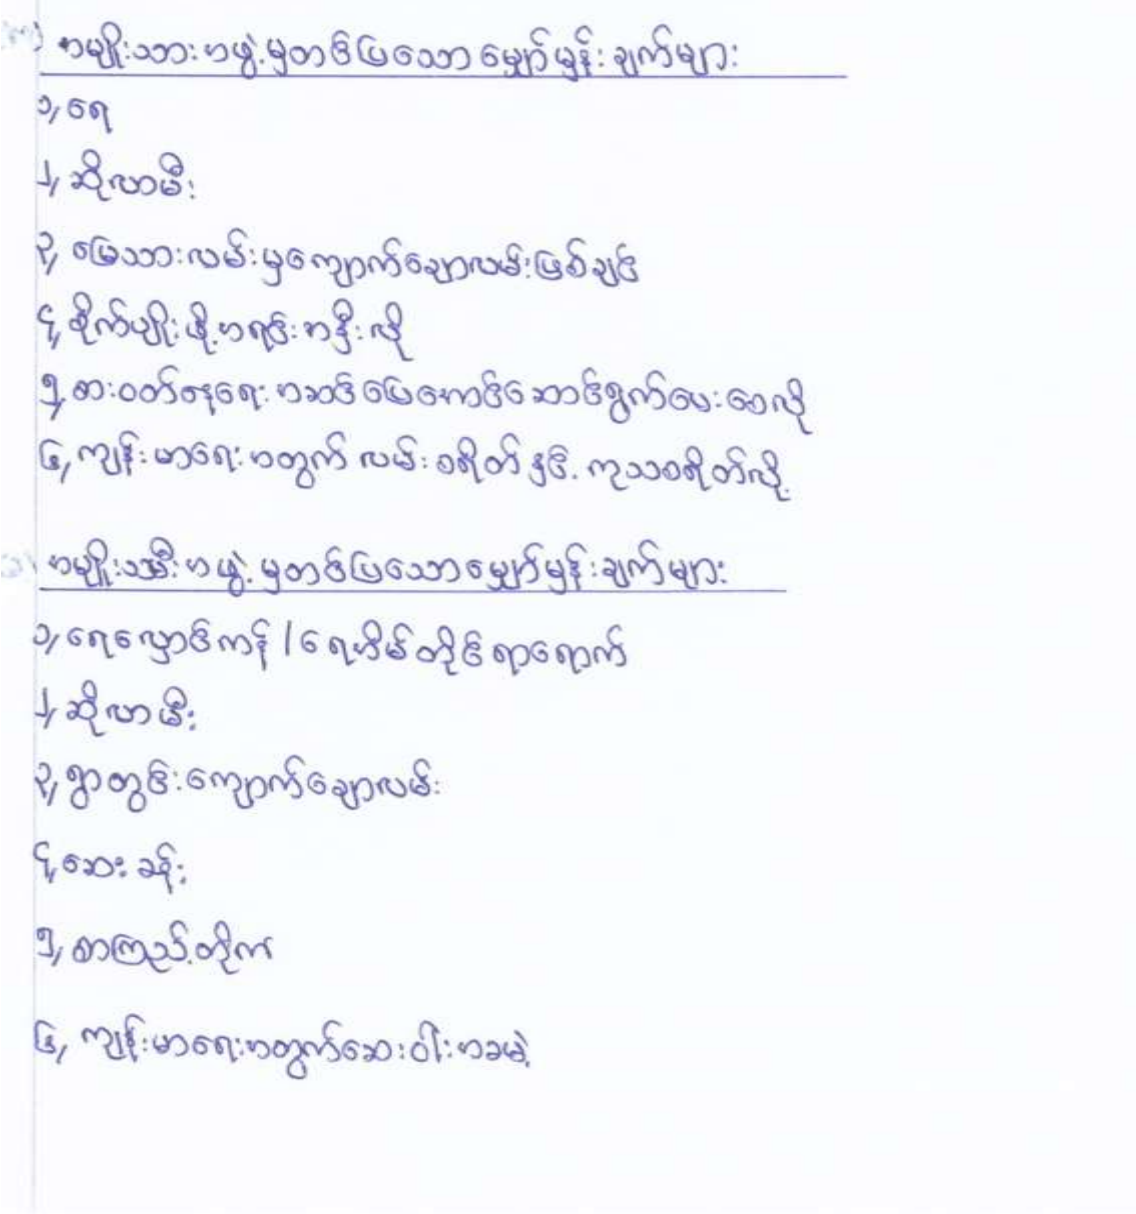 အမျိုးသားအဖွဲ့မှတင်ပြသောမျှော်မှန်းချက်များ
၁, ရေ
၂, ဆိုလာမီး
၃, မြေသားလမ်းမှကျောက်ချောလမ်းဖြစ်ချင်
၄, စိုက်ပျိုးဖို့အရင်းအနှီးလို
၅, စားဝတ်နေရေးအဆင်ပြေအောင်ဆောင်ရွက်ပေးစေလို
၆, ကျန်းမာရေးအတွက် လမ်းစရိတ်နှင့် ကုသစရိတ်လို့
အမျိုးသမီးအဖွဲ့မှတင်ပြသောမျှော်မှန်းချက်များ
၁, ရေလှောင်ကန် / ရေအိမ်တိုင်ရာရောက်
၂, ဆိုလာမီး
၃, ရွာတွင်းကျောက်ချောလမ်း
၄, ဆေးခန်း
၅, စာကြည့်တိုက်
၆, ကျန်းမာရေးအတွက်ဆေးဝါးအခမဲ့